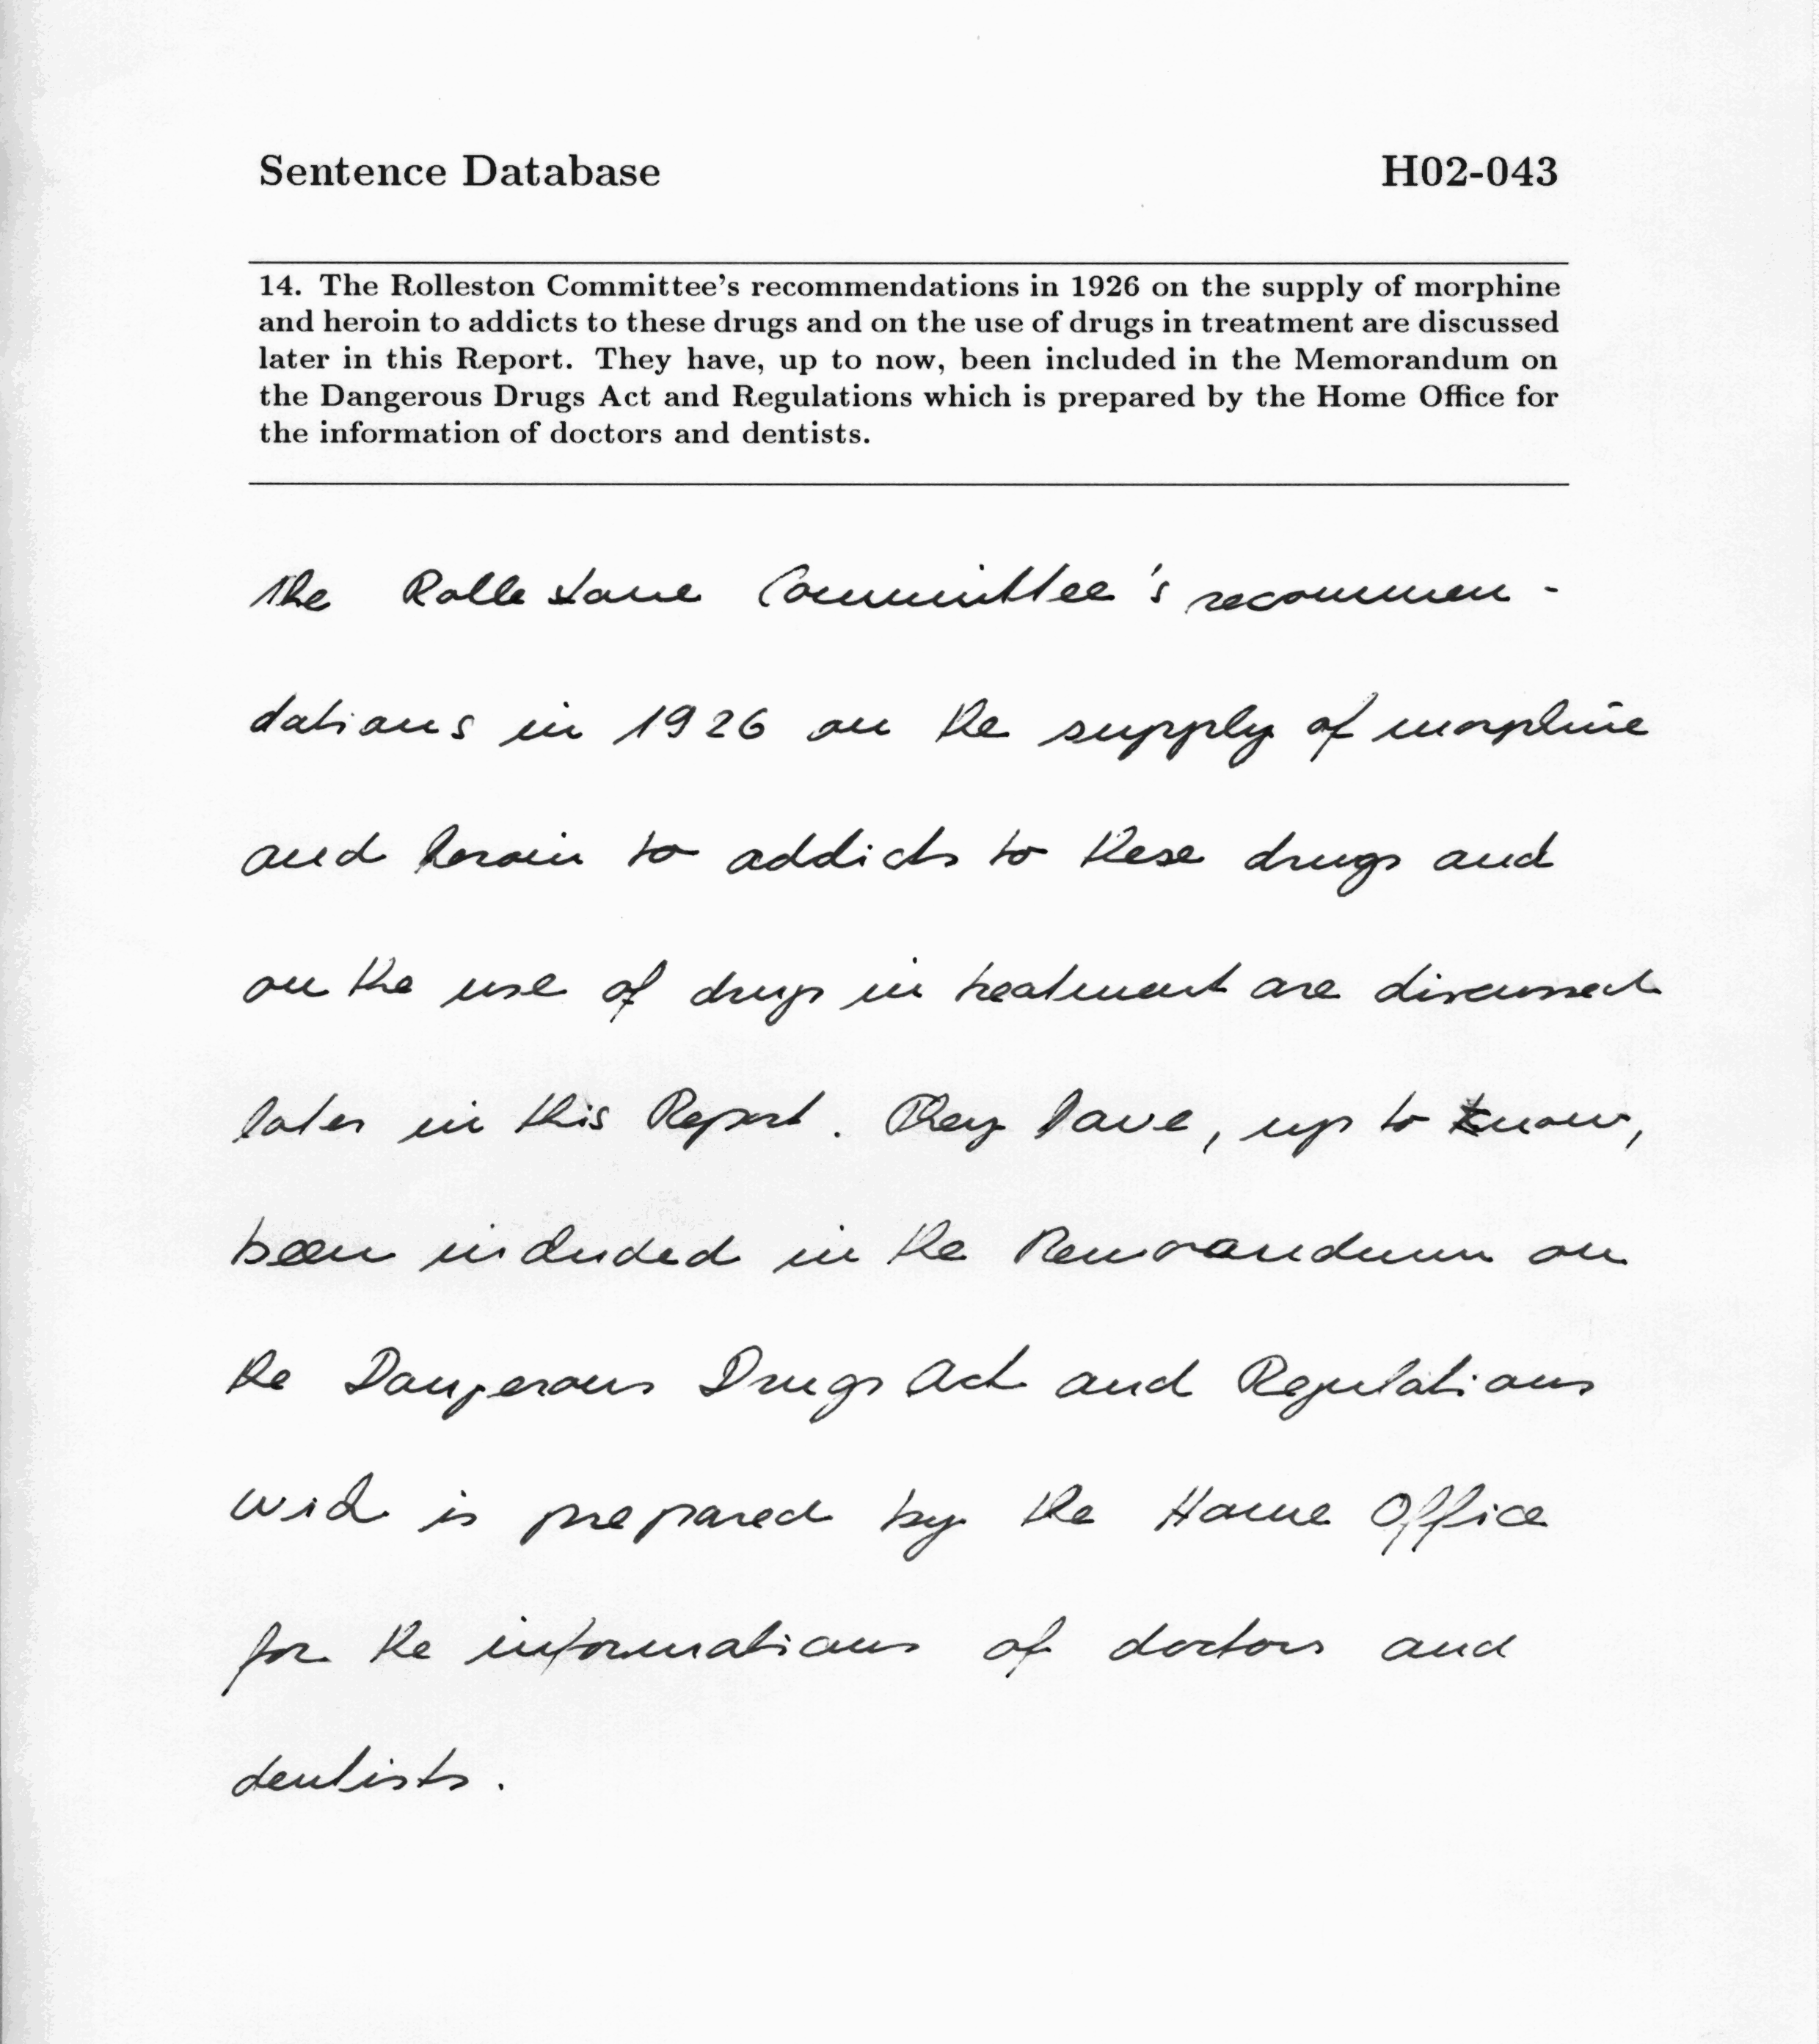 Sentence Database H02-043
14. The Rolleston Committee's recommendations in 1926 on the supply of morphine
and heroin to addicts to these drugs and on the use of drugs in treatment are discussed
later in this Report. They have, up to now, been included in the Memorandum on
the Dangerous Drugs Act and Regulations which is prepared by the Home Office for
the information of doctors and dentists.
The Rollestone Committee's recommen-
dations in 1926 on the supply of morphine
and heroin to addicts to these drugs and
on the use of drugs in treatment are discussed
later in this Report. They have, up to know,
been included in the Memorandum on
the Dangerous Drugs Act and Regulations
wich is prepared by the Home Office
for the informations of doctors and
dentists.